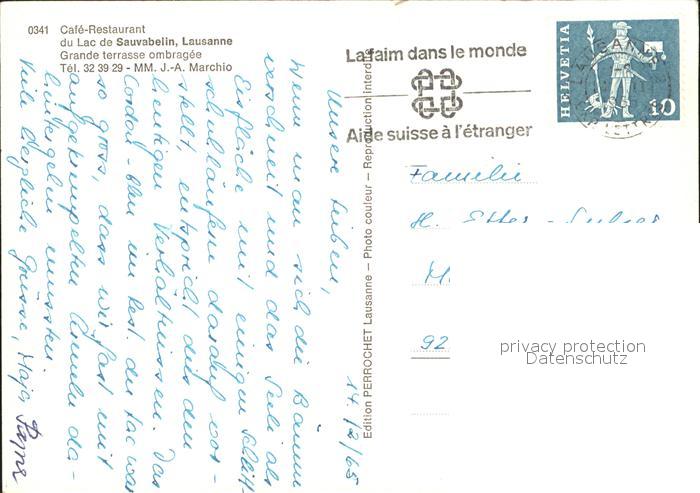 0341 Café-Restaurant
du Lac de Sauvabelin, Lausanne
Grande terrasse ombragée
Tél. 32 39 29 - MM. J.-A. Marchio
La faim dans le monde
Aide suisse à l'étranger
HELVETIA
10
Edition PERROCHET Lausanne – Photo couleur – Reproduction interdite
14./2/65
Unsere Lieben,
Wenn man sich die Bäume
verschneit und das Seeli als
Eisfläche mit einigen Schlitt-
schuhläufern darauf vor-
stellt, entspricht dies den
heutigen Verhältnissen. Das
Cordon-bleu im Rest. du Lac war
so gross, dass wir fast mit
aufgekrempelten Ärmeln da-
hintergehn mussten.
Viele herzliche Grüsse,
Familie
H.
92
privacy protection
Datenschutz